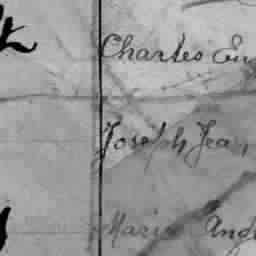 Charles Eu
Joseph Jean
Marie Ang